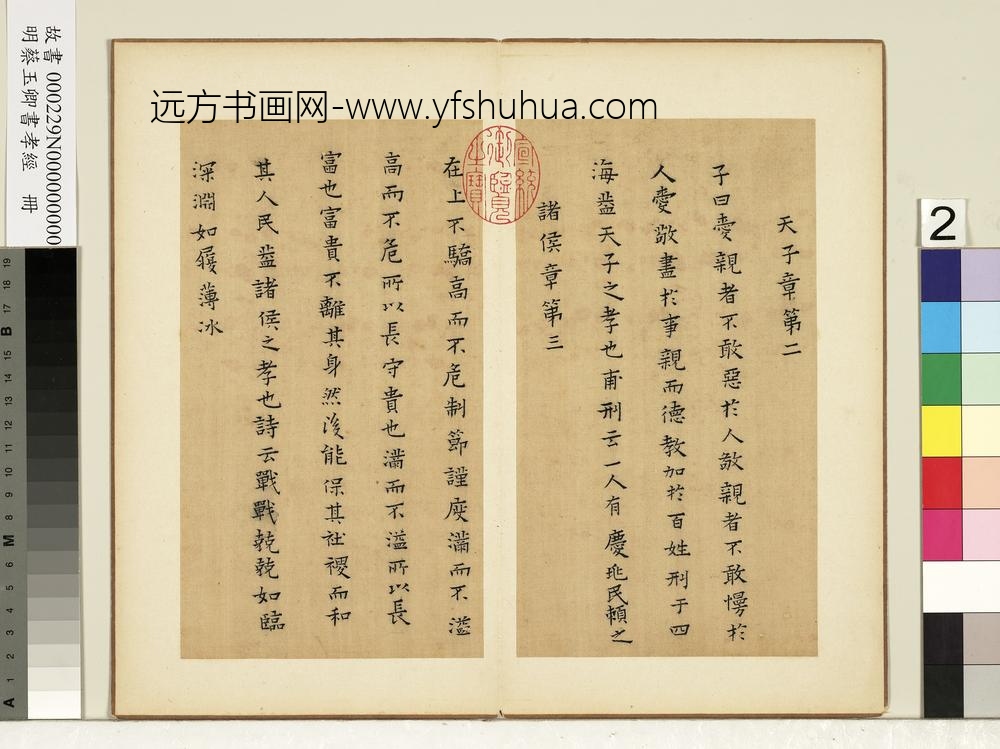 远方书画网-www.yfshuhua.com
故書 000229N000000000
明蔡玉卿書孝經 冊
天子章第二
子曰愛親者不敢惡於人敬親者不敢慢於
人愛敬盡於事親而德教加於百姓刑于四
海蓋天子之孝也甫刑云一人有慶兆民賴之
諸侯章第三
宣統御覽之寶
在上不驕高而不危制節謹度滿而不溢
高而不危所以長守貴也滿而不溢所以長
富也富貴不離其身然後能保其社稷而和
其人民蓋諸侯之孝也詩云戰戰兢兢如臨
深淵如履薄冰
2
19
18
B 17
16
15
14
13
12
11
10
9
8
M
6
5
4
3
2
A 1